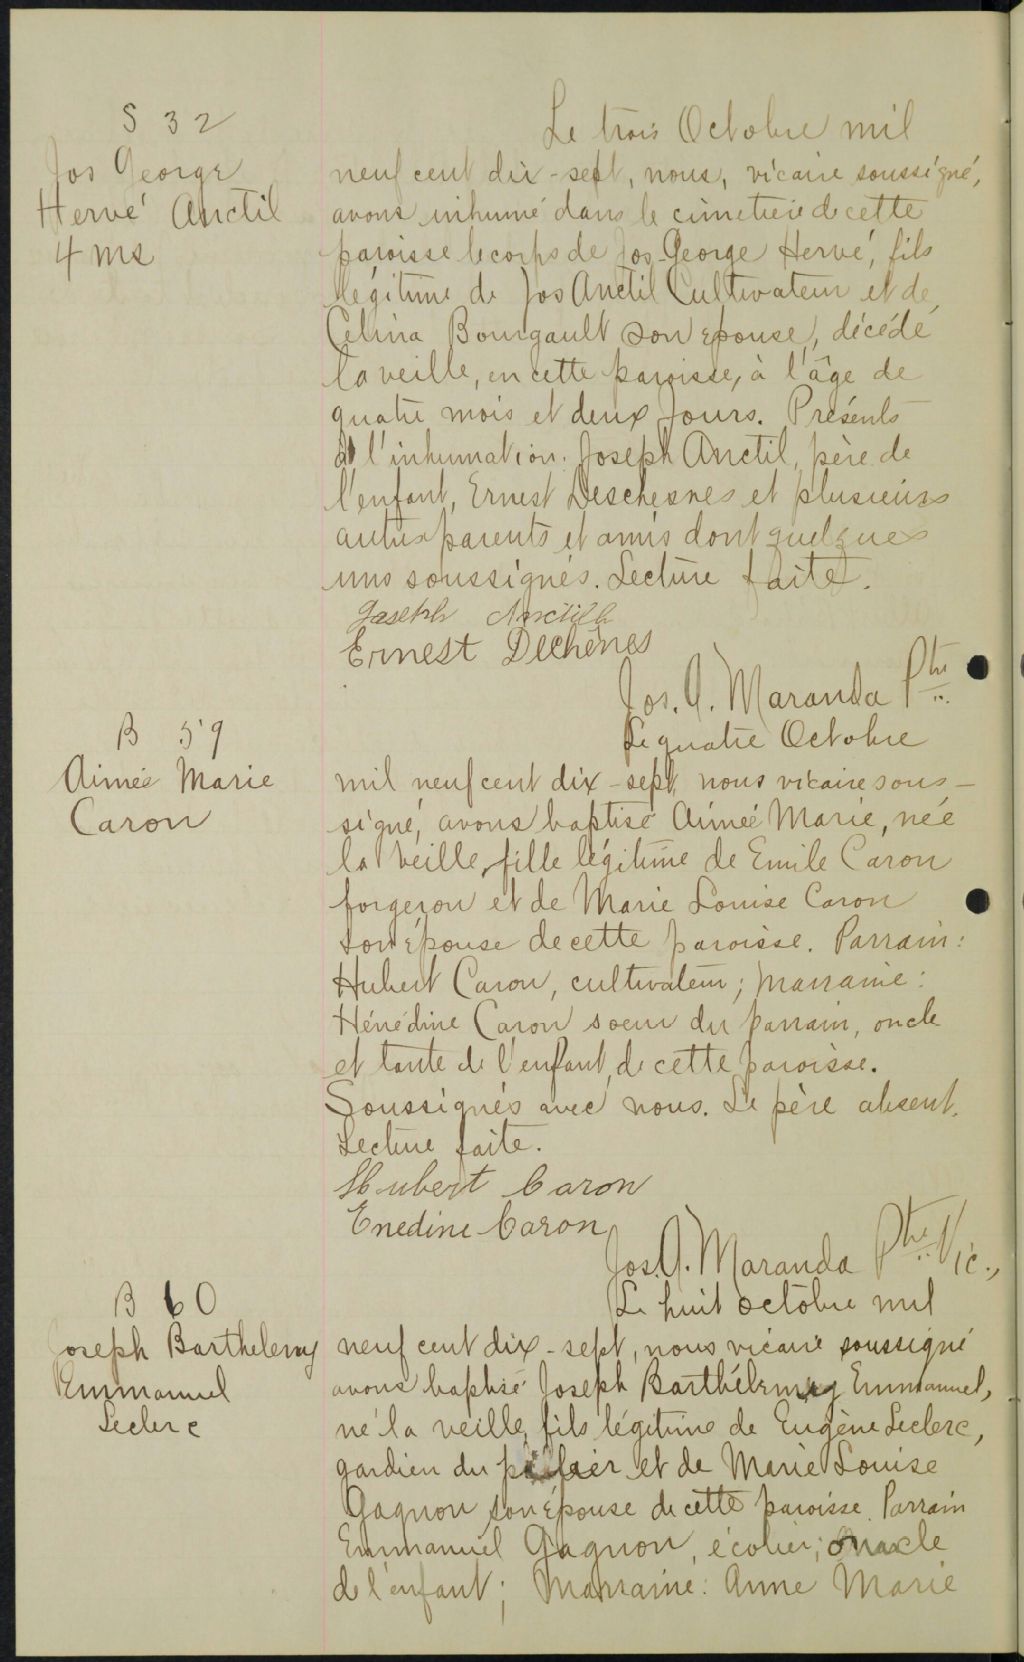 S 32
Jos George
Hervé Anctil
4 ms
Le trois Octobre mil
neuf cent dix-sept, nous, vicaire soussigné,
avons inhumé dans le cimetière de cette
paroisse le corps de Jos-George Hervé, fils
légitime de Jos Anctil Cultivateur et de
Celina Bourgault son épouse, décédé
la veille, en cette paroisse, à l'âge de
quatre mois et deux jours. Présents
à l'inhumation: Joseph Anctil, père de
l'enfant, Ernest Deschesnes et plusieurs
autres parents et amis dont quelques
uns soussignés. Lecture faite.
Joseph Anctil
Ernest Dechênes
Jos. A. Maranda Ptre
B 59
Aimée Marie
Caron
Le quatre Octobre
mil neuf cent dix-sept nous vicaire sous-
signé, avons baptisé Aimée Marie, née
la veille, fille légitime de Emile Caron
forgeron et de Marie Louise Caron
son épouse de cette paroisse. Parrain:
Hubert Caron, cultivateur; marraine:
Hénédine Caron soeur du parrain, oncle
et tante de l'enfant, de cette paroisse.
Soussignés avec nous. Le père absent.
Lecture faite.
Hubert Caron
Enedine Caron
Jos. A. Maranda Ptre Vic.,
B 60
Joseph Barthelemy
Emmanuel
Leclerc
Le huit octobre mil
neuf cent dix-sept, nous vicaire soussigné
avons baptisé Joseph Barthélemy Emmanuel,
né la veille, fils légitime de Eugène Leclerc,
gardien du et de Marie Louise
Gagnon son épouse de cette paroisse. Parrain
Emmanuel Gagnon, écolier; oncle
de l'enfant; Marraine: Anne Marie